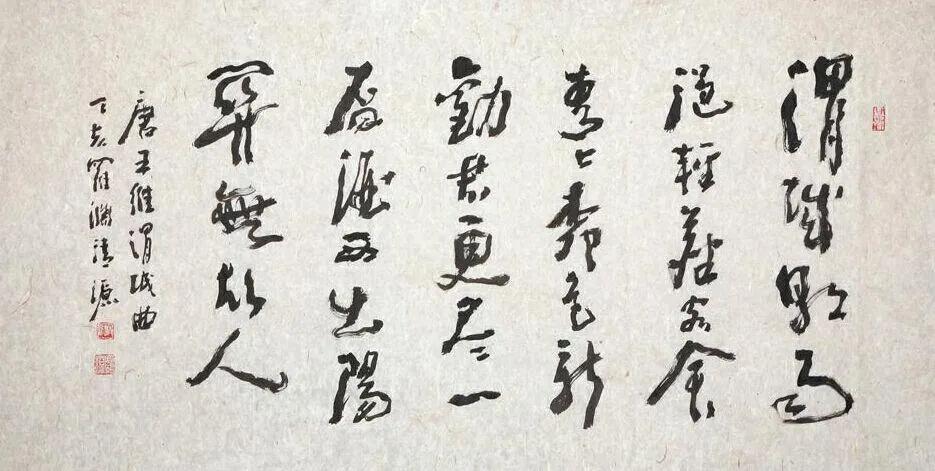 渭城朝雨
浥輕塵客舍
青々柳色新
勸君更尽一
杯酒西出陽
關無故人
唐王維渭城曲
丁亥